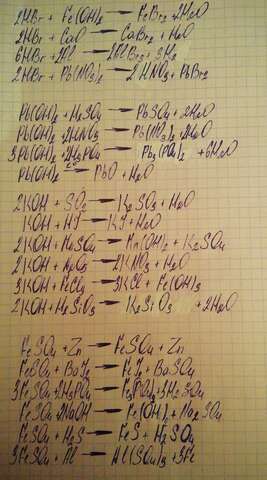 2HBr + Fe(OH)2 → FeBr2 + 2H2O
2HBr + CaO → CaBr2 + H2O
6HBr + 2Al → 2AlBr3 + 3H2
2HBr + Pb(NO3)2 → 2HNO3 + PbBr2
Pb(OH)2 + H2SO4 → PbSO4 + 2H2O
Pb(OH)2 + 2HNO3 → Pb(NO3)2 + 2H2O
3Pb(OH)2 + 2H3PO4 → Pb3(PO4)2 + 6H2O
Pb(OH)2 → PbO + H2O
2KOH + SO2 → K2SO3 + H2O
KOH + HJ → KJ + H2O
2KOH + MnSO4 → Mn(OH)2 + K2SO4
2KOH + → 2KNO3 + H2O
3KOH + FeCl3 → 3KCl + Fe(OH)3
2KOH + H2SiO3 → K2SiO3 + 2H2O
FeSO4 + Zn → FeSO4 + Zn
FeSO4 + BaJ2 → FeJ2 + BaSO4
3FeSO4 + 2H3PO4 → Fe3(PO4)2 + 3H2SO4
FeSO4 + 2NaOH → Fe(OH)2 + Na2SO4
FeSO4 + H2S → FeS + H2SO4
3FeSO4 + Al → Al(SO4)3 + 3Fe